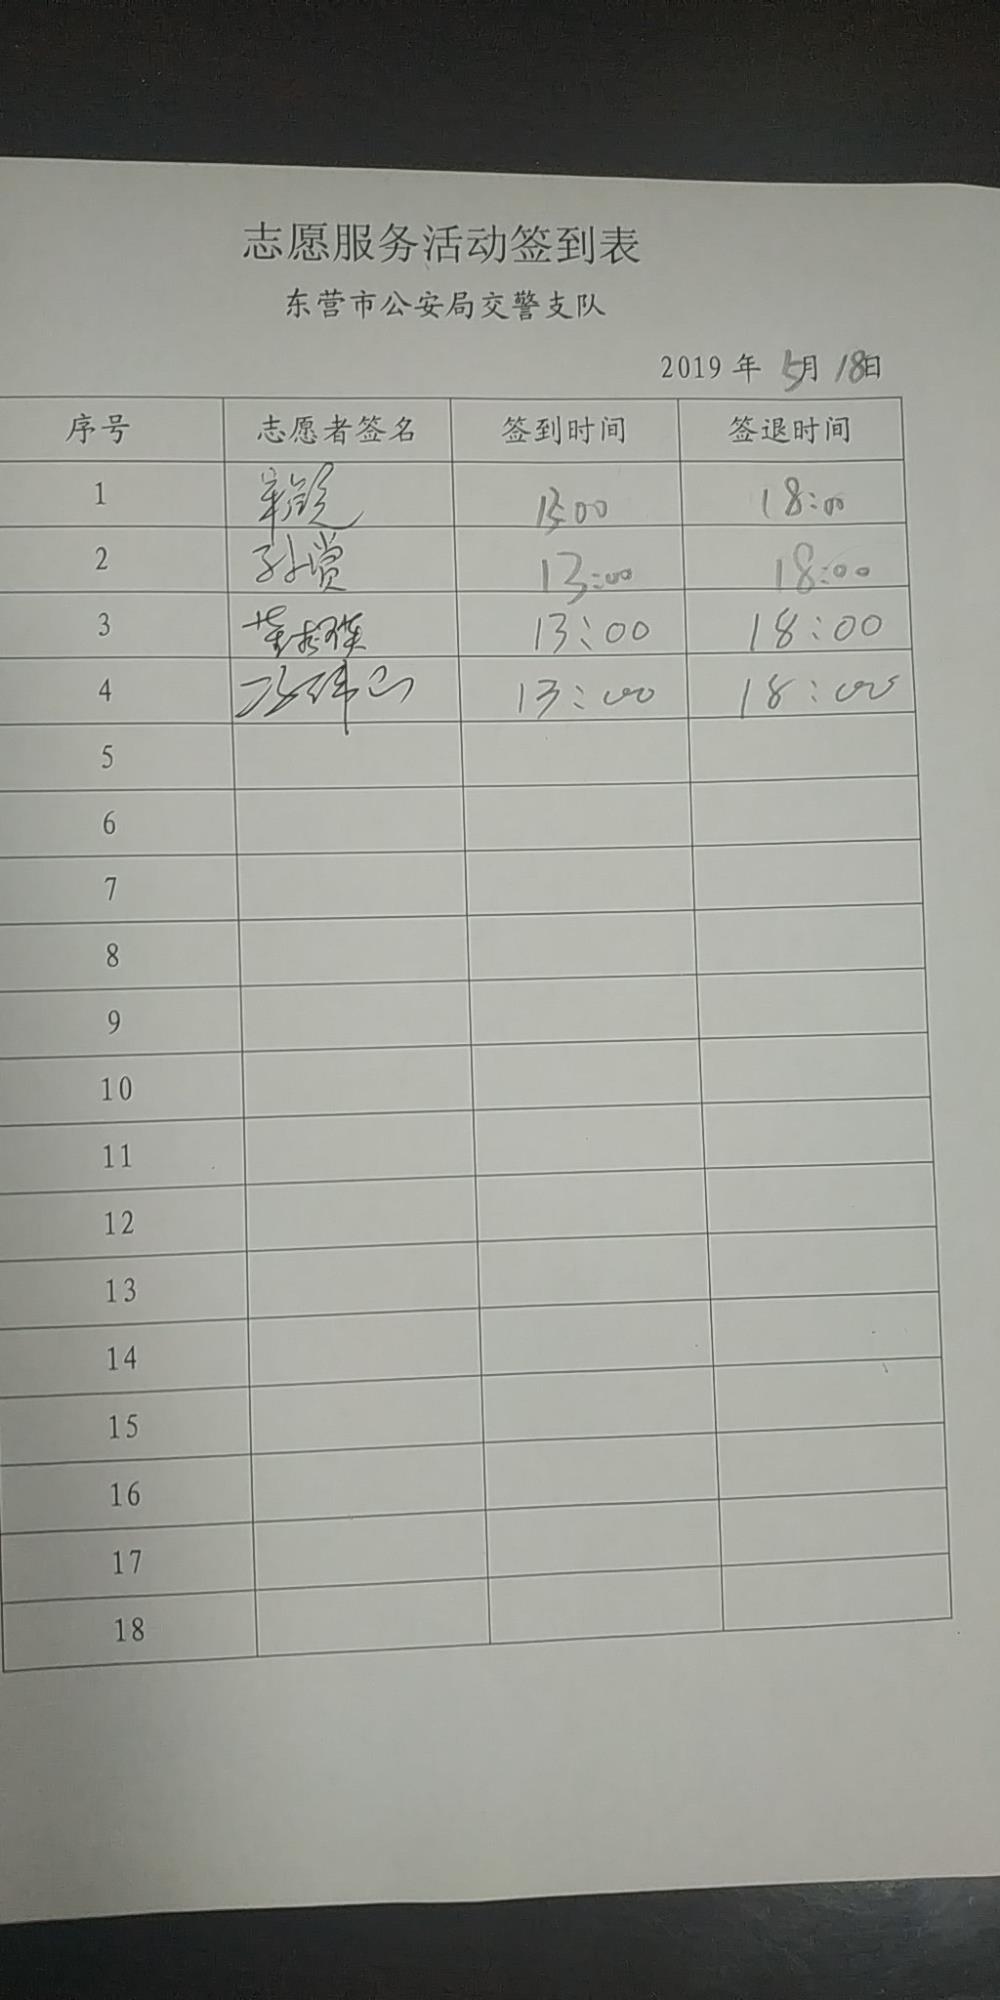 志愿服务活动签到表
东营市公安局交警支队
2019 年 5月 18日
序号 志愿者签名 签到时间 签退时间
1 13:00 18:00
2 孙赏 13:00 18:00
3 13:00 18:00
4 13:00 18:00
5
6
7
8
9
10
11
12
13
14
15
16
17
18